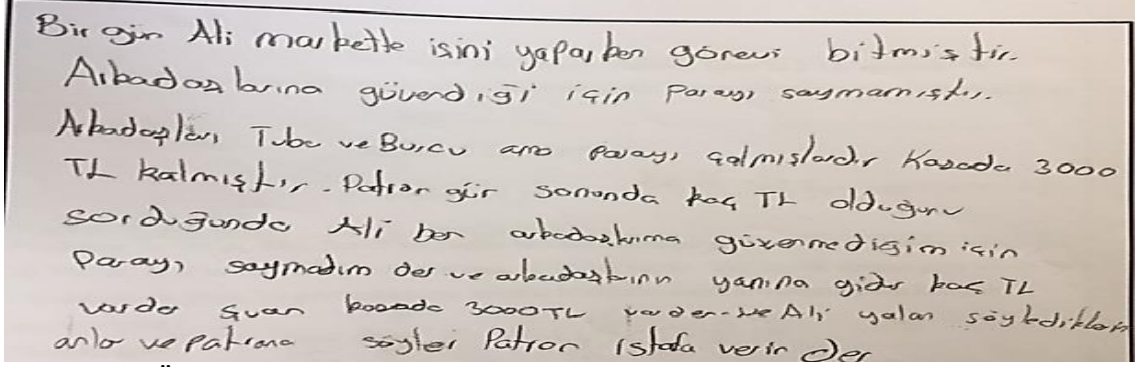 Bir gün Ali markette isini yaparken görevi bitmiştir.
Arkadaşlarına güvendiği için Parayı saymamıştır.
Arkadaşları Tuba ve Burcu ama Parayı çalmışlardır Kasada 3000
TL kalmıştır. Patron gün sonunda kaç TL olduğunu
sorduğunda Ali ben arkadaşlarıma güvenmediğim için
Parayı saymadım der ve arkadaşlarının yanına gider kaç TL
vardır şuan kasada 3000TL var der. ve Ali yalan söyledikleri
anlar ve patrona söyler Patron istafa verin der